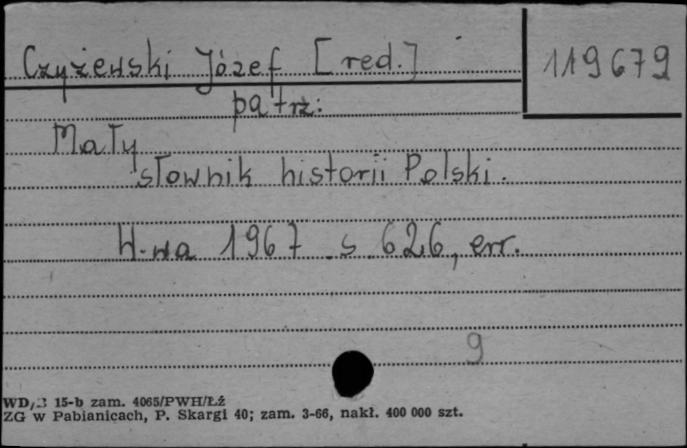 Czyżewski Józef [red.]
119679
patrz:
Mały
słownik historii Polski.
W-wa 1967 s. 626, err.
9
15-b zam. 4065/PWH/Łź
ZG w Pabianicach, P. Skargi 40; zam. 3-66, nakł. 400 000 szt.